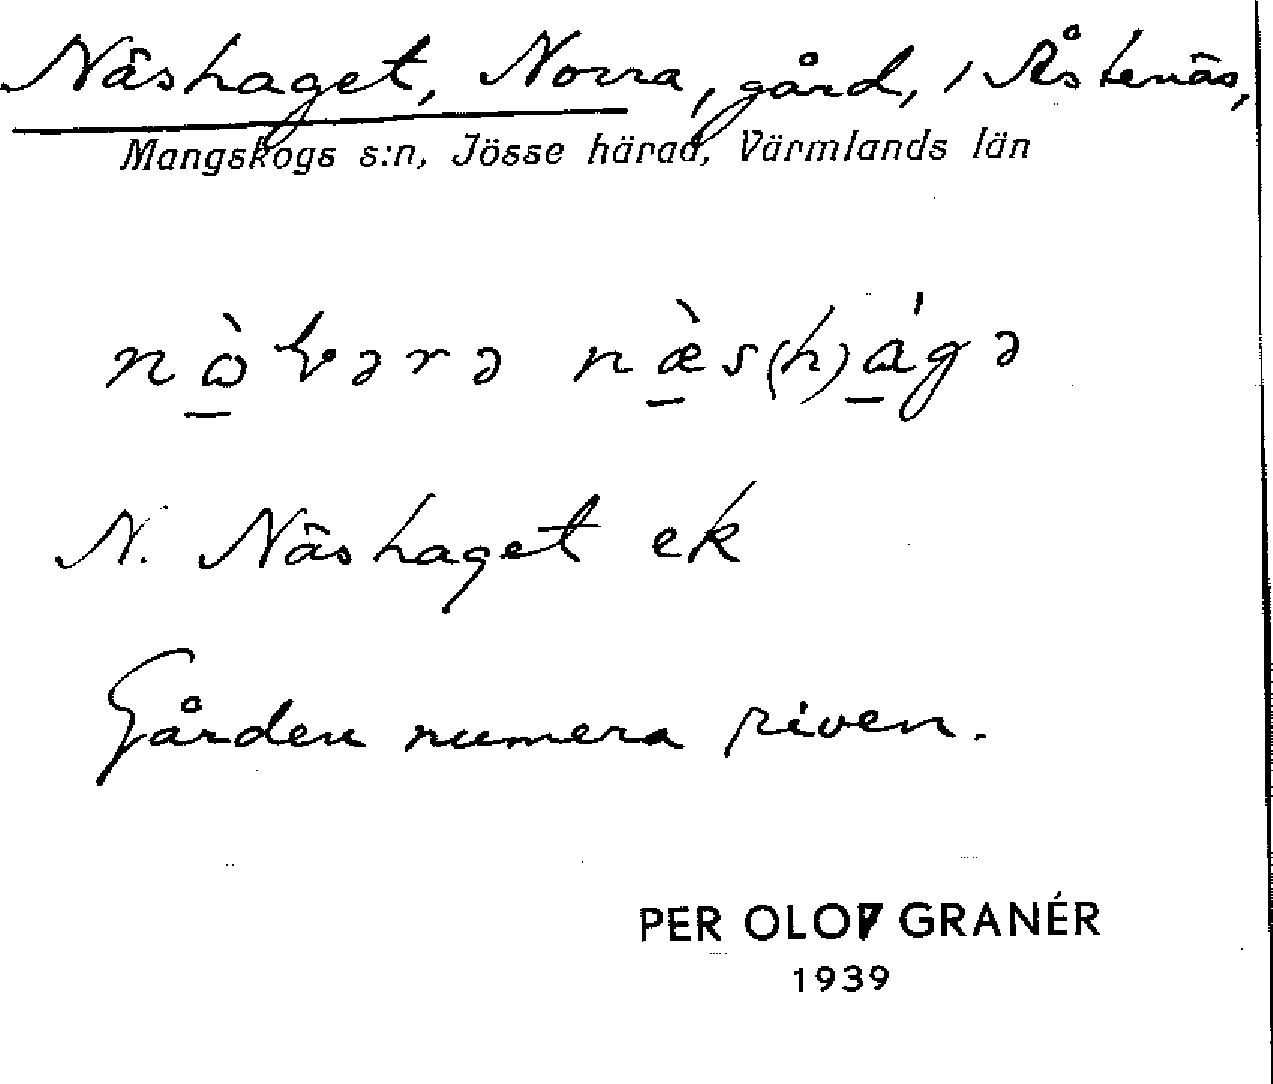 Näshaget, Norra, gård, / Åstenäs,
Mangskogs s:n, Jösse härad, Värmlands län
næ̀s(h)ágə
N. Näshaget ek
Gården numera riven.
PER OLOF GRANÉR
1939